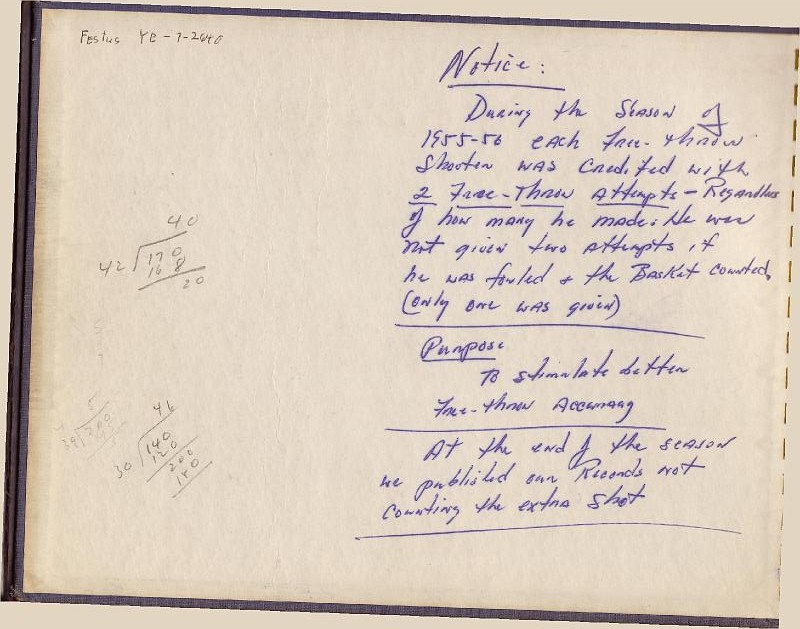 Festus YE-7-2640
Notice:
During the Season of
1955-56 each free-throw
Shooter was credited with
2 Free-Throw Attempts - Regardless
of how many he made. He was
not given two attempts if
he was fouled & the Basket counted.
(only one was given)
Purpose
To stimulate better
free-throw Accuracy
At the end of the season
we published our Records not
counting the extra shot
40
42 170
16 8
20
46
30 140
120
200
180